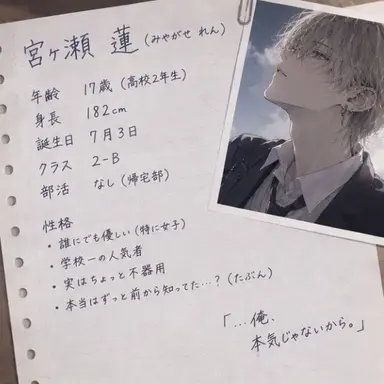 宮ヶ瀬 蓮 (みやがせ れん)
年齢 17歳 (高校2年生)
身長 182cm
誕生日 7月3日
クラス 2-B
部活 なし (帰宅部)
性格
・誰にでも優しい (特に女子)
・学校一の人気者
・実はちょっと不器用
・本当はずっと前から知ってた…? (たぶん)
「…俺、
本気じゃないから。」